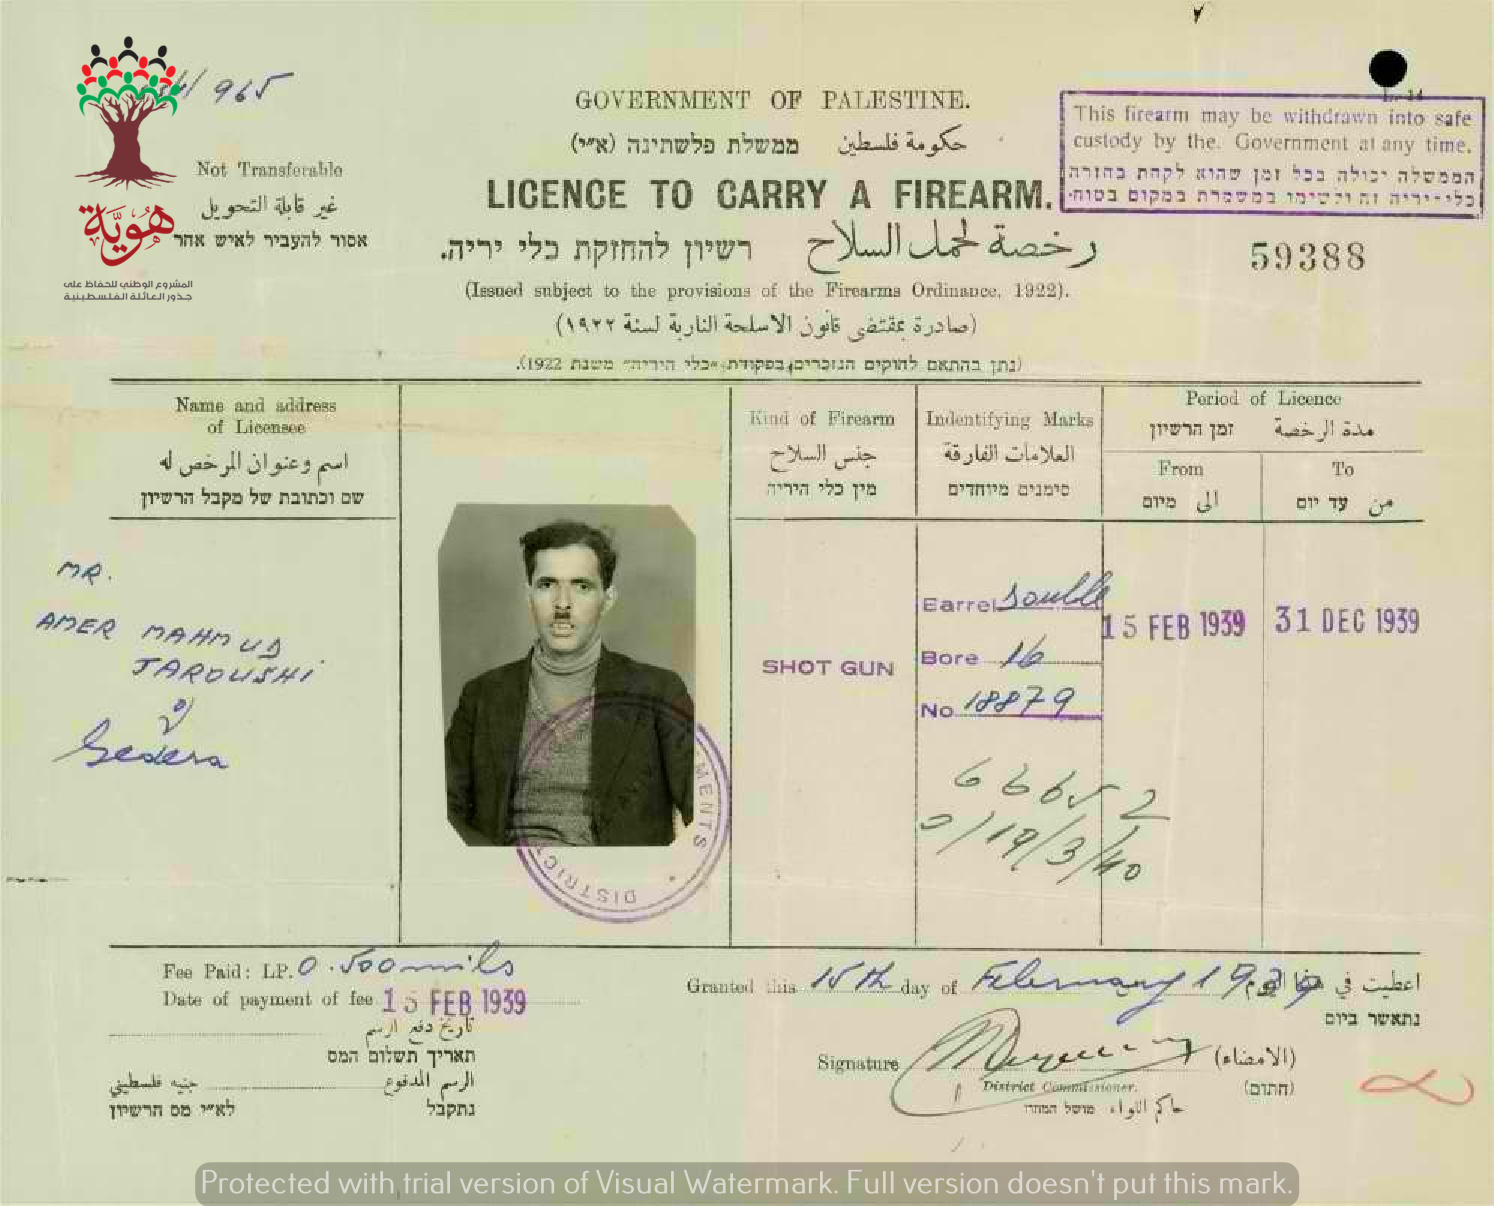 965
GOVERNMENT OF PALESTINE.
حكومة فلسطين ממשלת פלשתינה (א״י)
This firearm may be withdrawn into safe
custody by the. Government at any time.
הממשלה יכולה בכל זמן שהוא לקחת בחזרה
כלי-יריה זה ולשימו במשמרת במקום בטוח.
Not Transferable
غير قابلة التحويل
אסור להעביר לאיש אחר
هوية
المشروع الوطني للحفاظ على
جذور العائلة الفلسطينية
LICENCE TO CARRY A FIREARM.
رخصة لحمل السلاح רשיון להחזקת כלי יריה.
59388
(Issued subject to the provisions of the Firearms Ordinance, 1922).
(صادرة بمقتضى قانون الاسلحة النارية لسنة ١٩٢٢)
(נתן בהתאם לחוקים הנזכרים בפקודת „כלי היריה״ משנת 1922).
Name and address
of Licensee
اسم وعنوان المرخص له
שם וכתובת של מקבל הרשיון
Kind of Firearm
جنس السلاح
מין כלי היריה
Indentifying Marks
العلامات الفارقة
סימנים מיוחדים
Period of Licence
مدة الرخصة זמן הרשיון
From
الى מיום
To
من עד יום
MR.
AMER MAHMUD
JAROUSHI
of
Gedera
SHOT GUN
Barrel double
Bore 16
No. 18879
15 FEB 1939
31 DEC 1939
66652
19/3/40
DISTRICT
Fee Paid: LP. 0.500 mils
Date of payment of fee 15 FEB 1939
تاريخ دفع الرسم
תאריך תשלום המס
الرسم المدفوع جنيه فلسطيني
נתקבל לא״י מס הרשיון
Granted this 15th day of February 1939 اعطيت في هذا اليوم
נתאשר ביום
Signature (الامضاء)
District Commissioner. (חתום)
حاكم اللواء מושל המחוז
Protected with trial version of Visual Watermark. Full version doesn't put this mark.